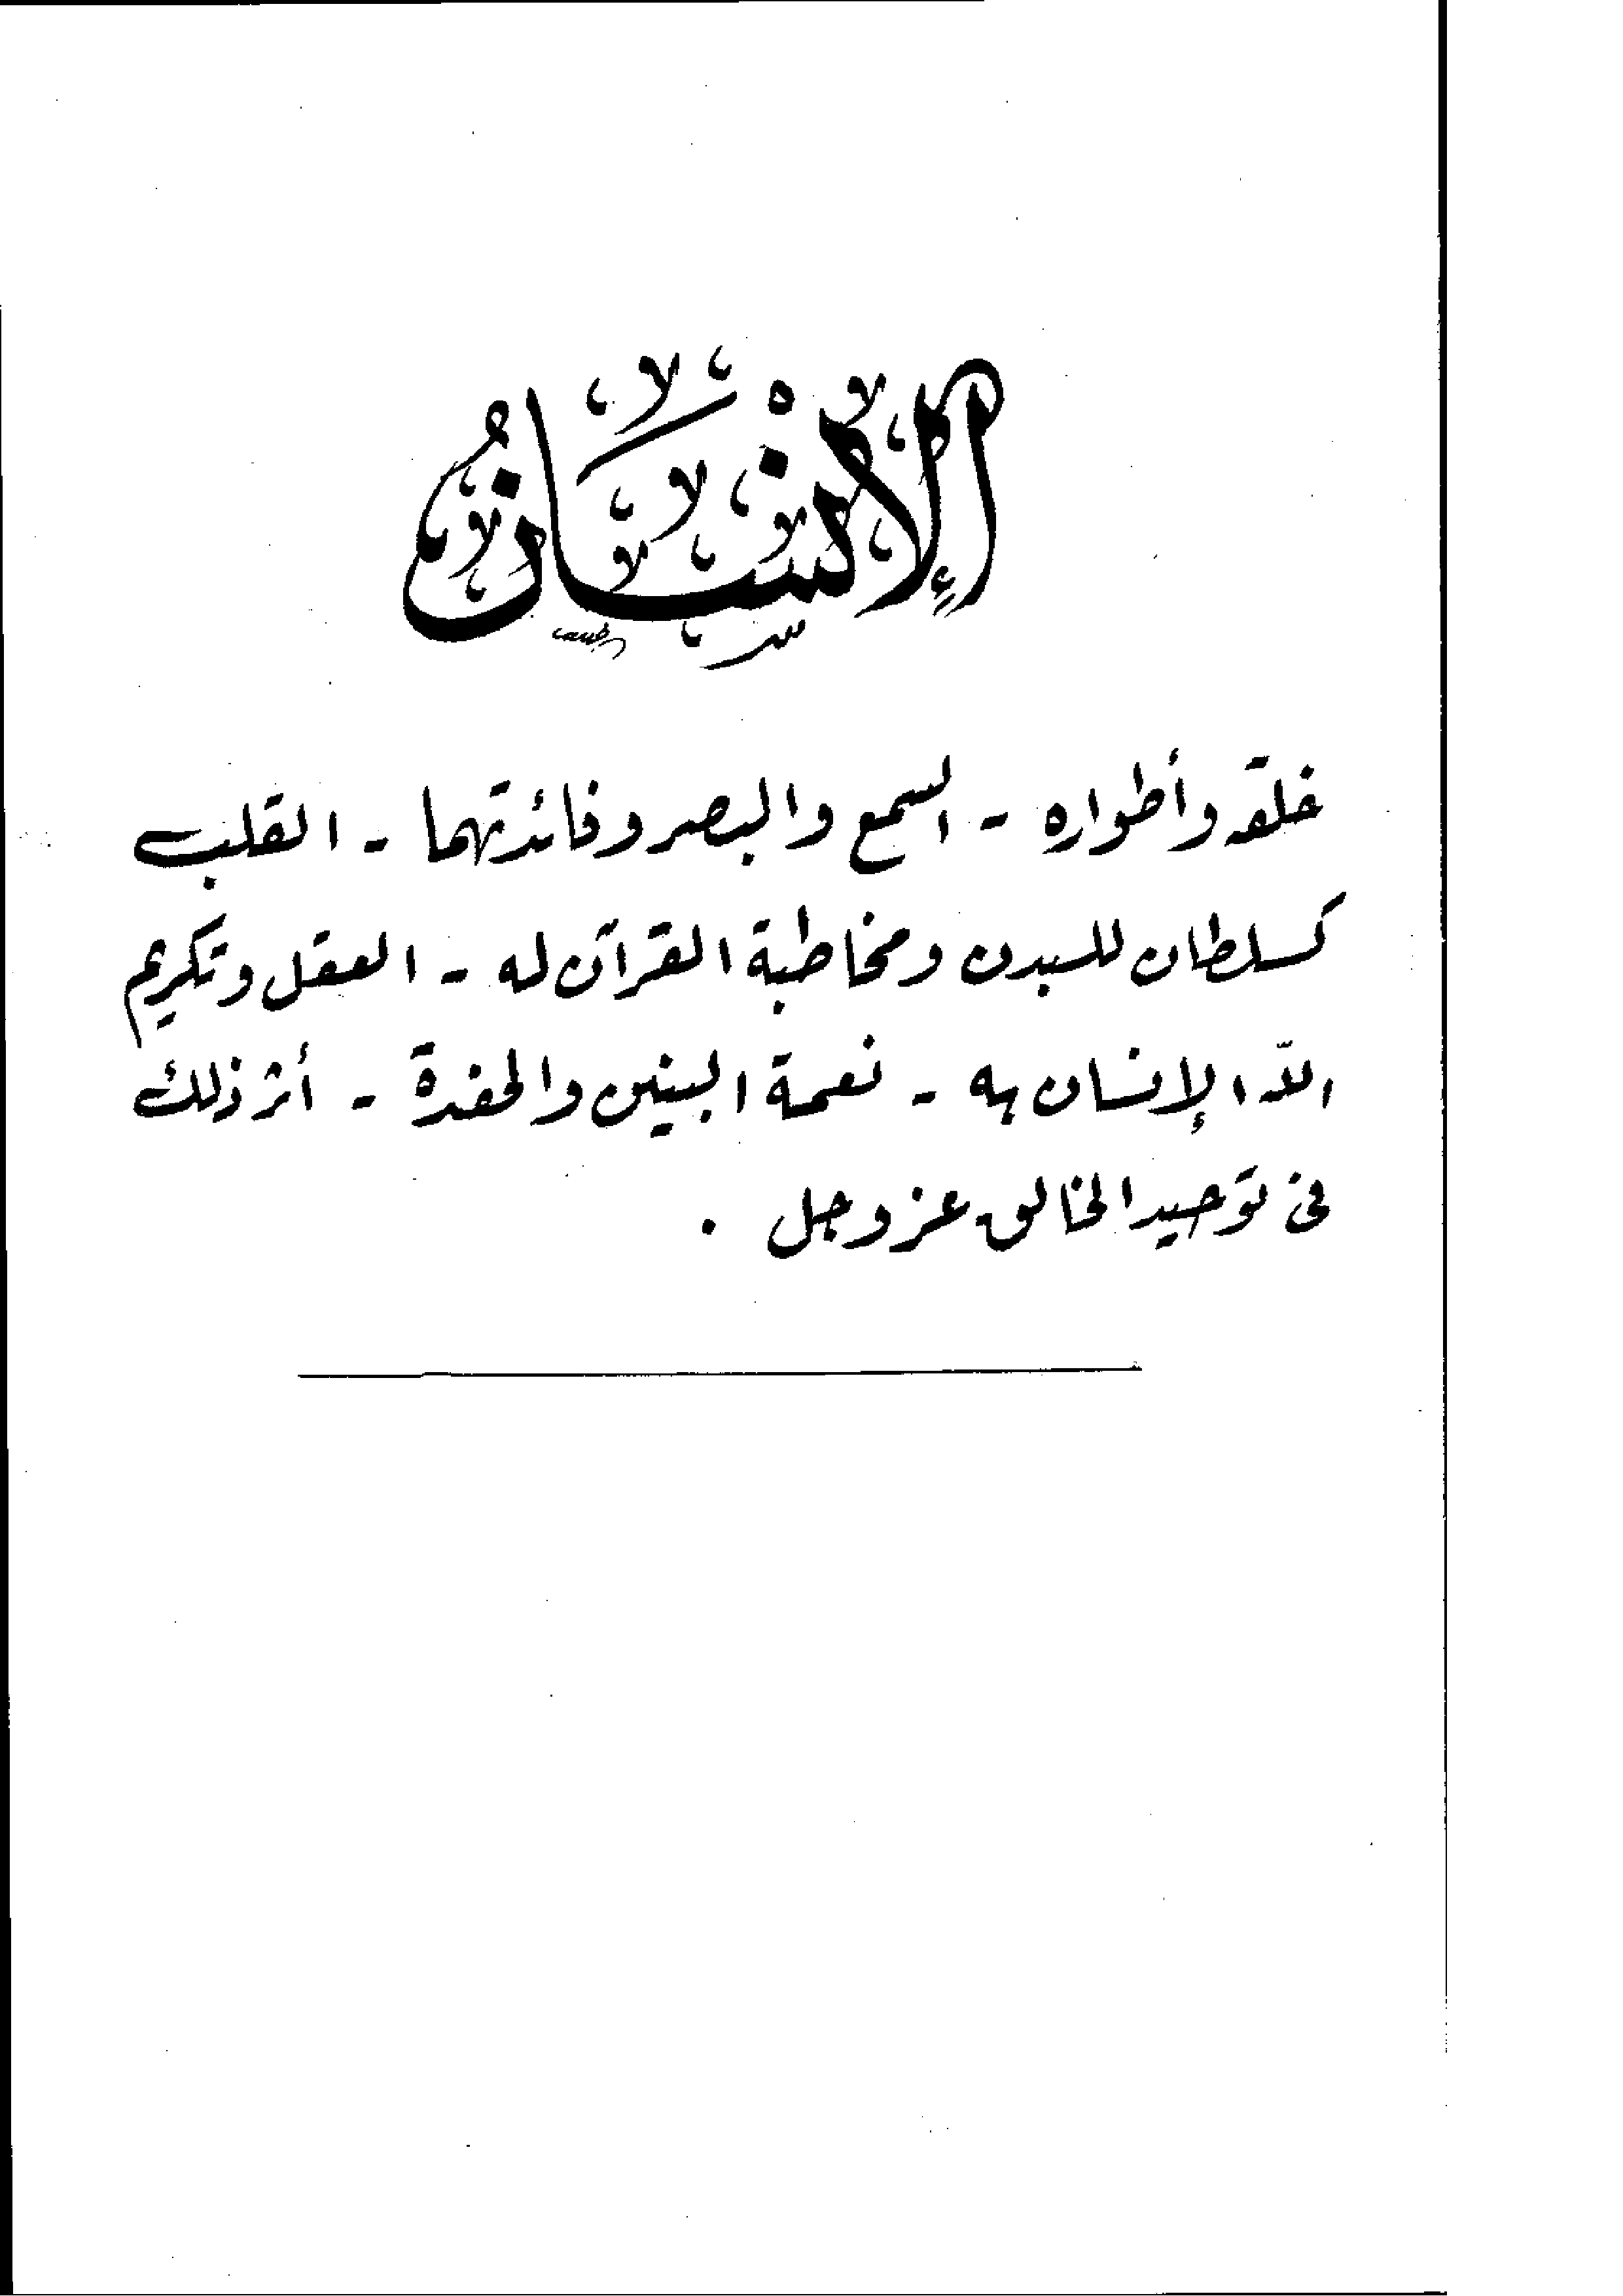 الإِنْسَانُ
خلقه وأطواره - السمع والبصر وفائدتهما - القلب
كسلطان للبدن ومخاطبة القرآن له - العقل وتكريم
اللّه الإنسان به - نعمة البنين والحفدة - أثر ذلك
فى توحيد الخالق عز وجل .